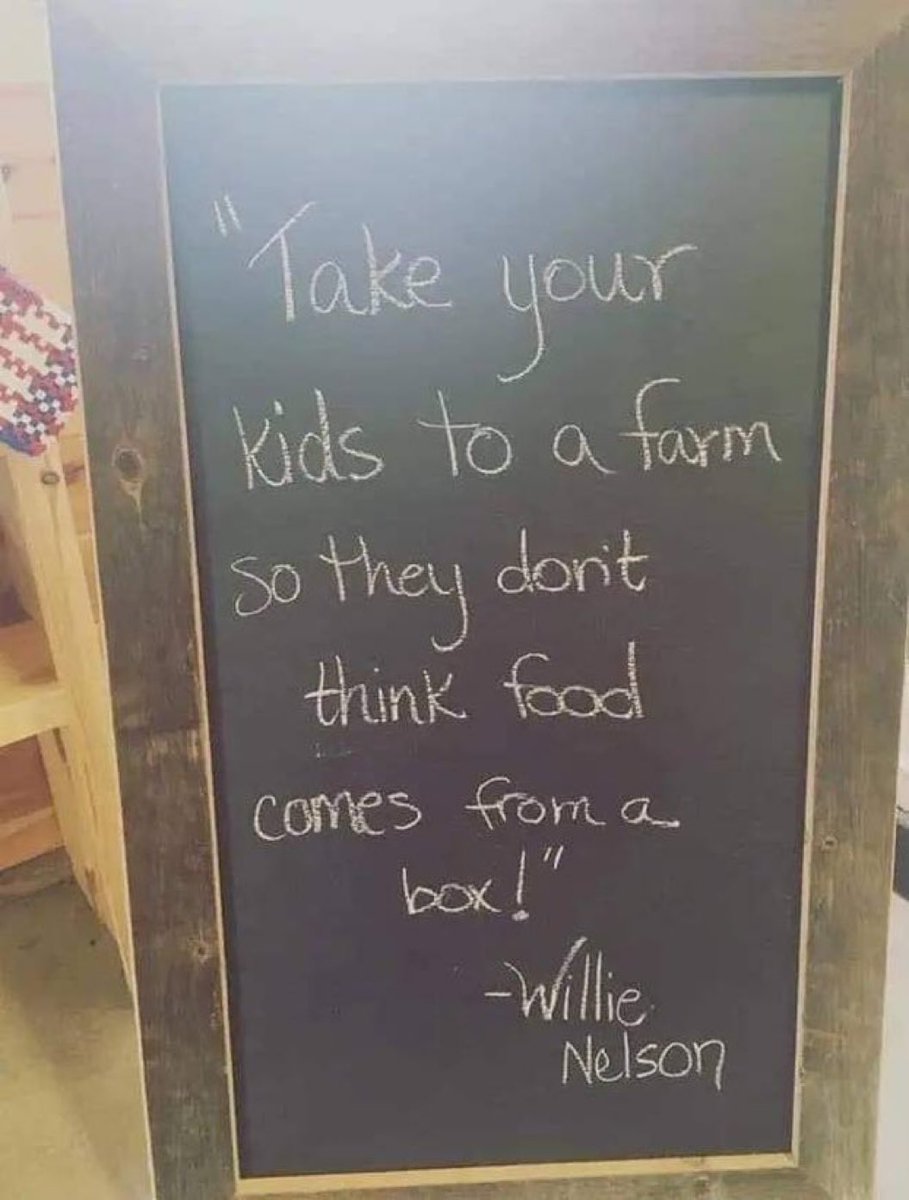 "Take your
kids to a farm
so they don't
think food
comes from a
box!"
-Willie
Nelson